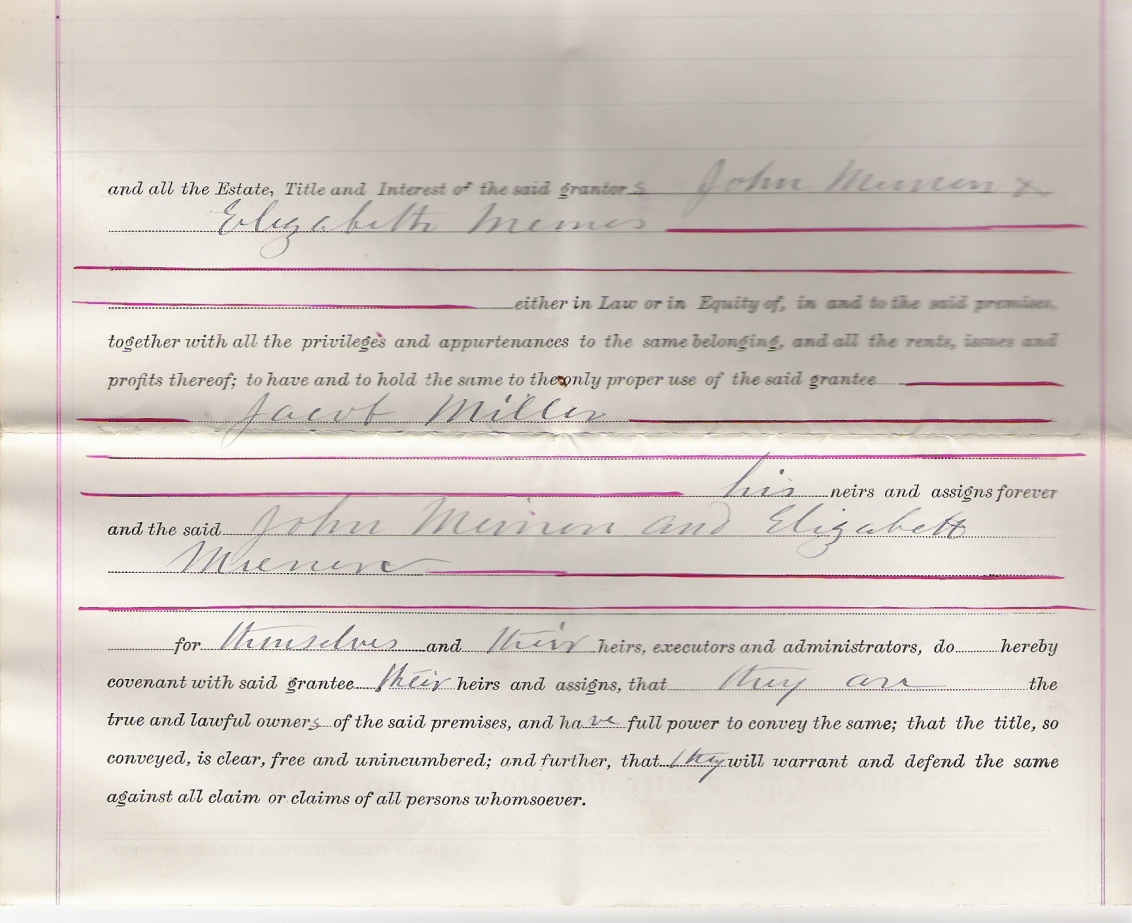 and all the Estate, Title and Interest of the said grantors John &
Elizabeth
either in Law or in Equity of, in and to the said premises,
together with all the privileges and appurtenances to the same belonging, and all the rents, issues and
profits thereof; to have and to hold the same to the only proper use of the said grantee
Jacob Miller
his heirs and assigns forever
and the said John and Elizabeth
for themselves and their heirs, executors and administrators, do hereby
covenant with said grantee their heirs and assigns, that they are the
true and lawful owners of the said premises, and have full power to convey the same; that the title, so
conveyed, is clear, free and unincumbered; and further, that they will warrant and defend the same
against all claim or claims of all persons whomsoever.